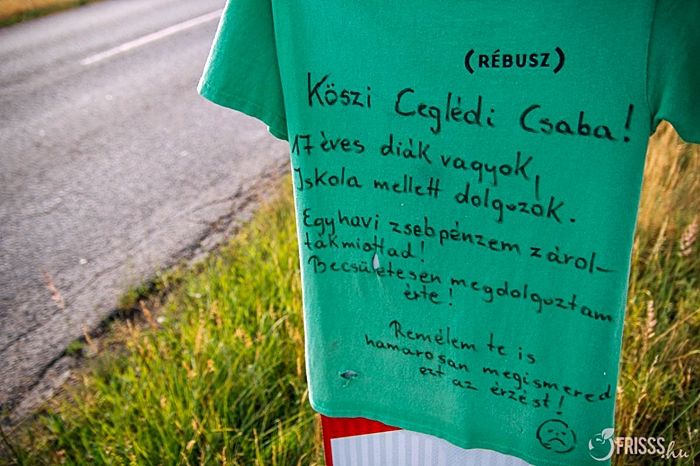 (RÉBUSZ)
Köszi Ceglédi Csaba!
17 éves diák vagyok,
Iskola mellett dolgozok.
Egyhavi zsebpénzem zárol-
takmiattad!
Becsületesen megdolgoztam
érte!
Remélem te is
hamarosan megismered
ezt az érzést!
FRISSS.hu